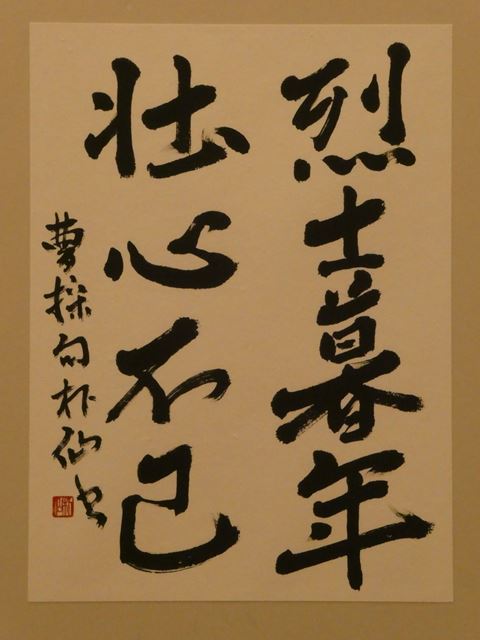 烈士暮年
壮心不已
曹操句朴仙书